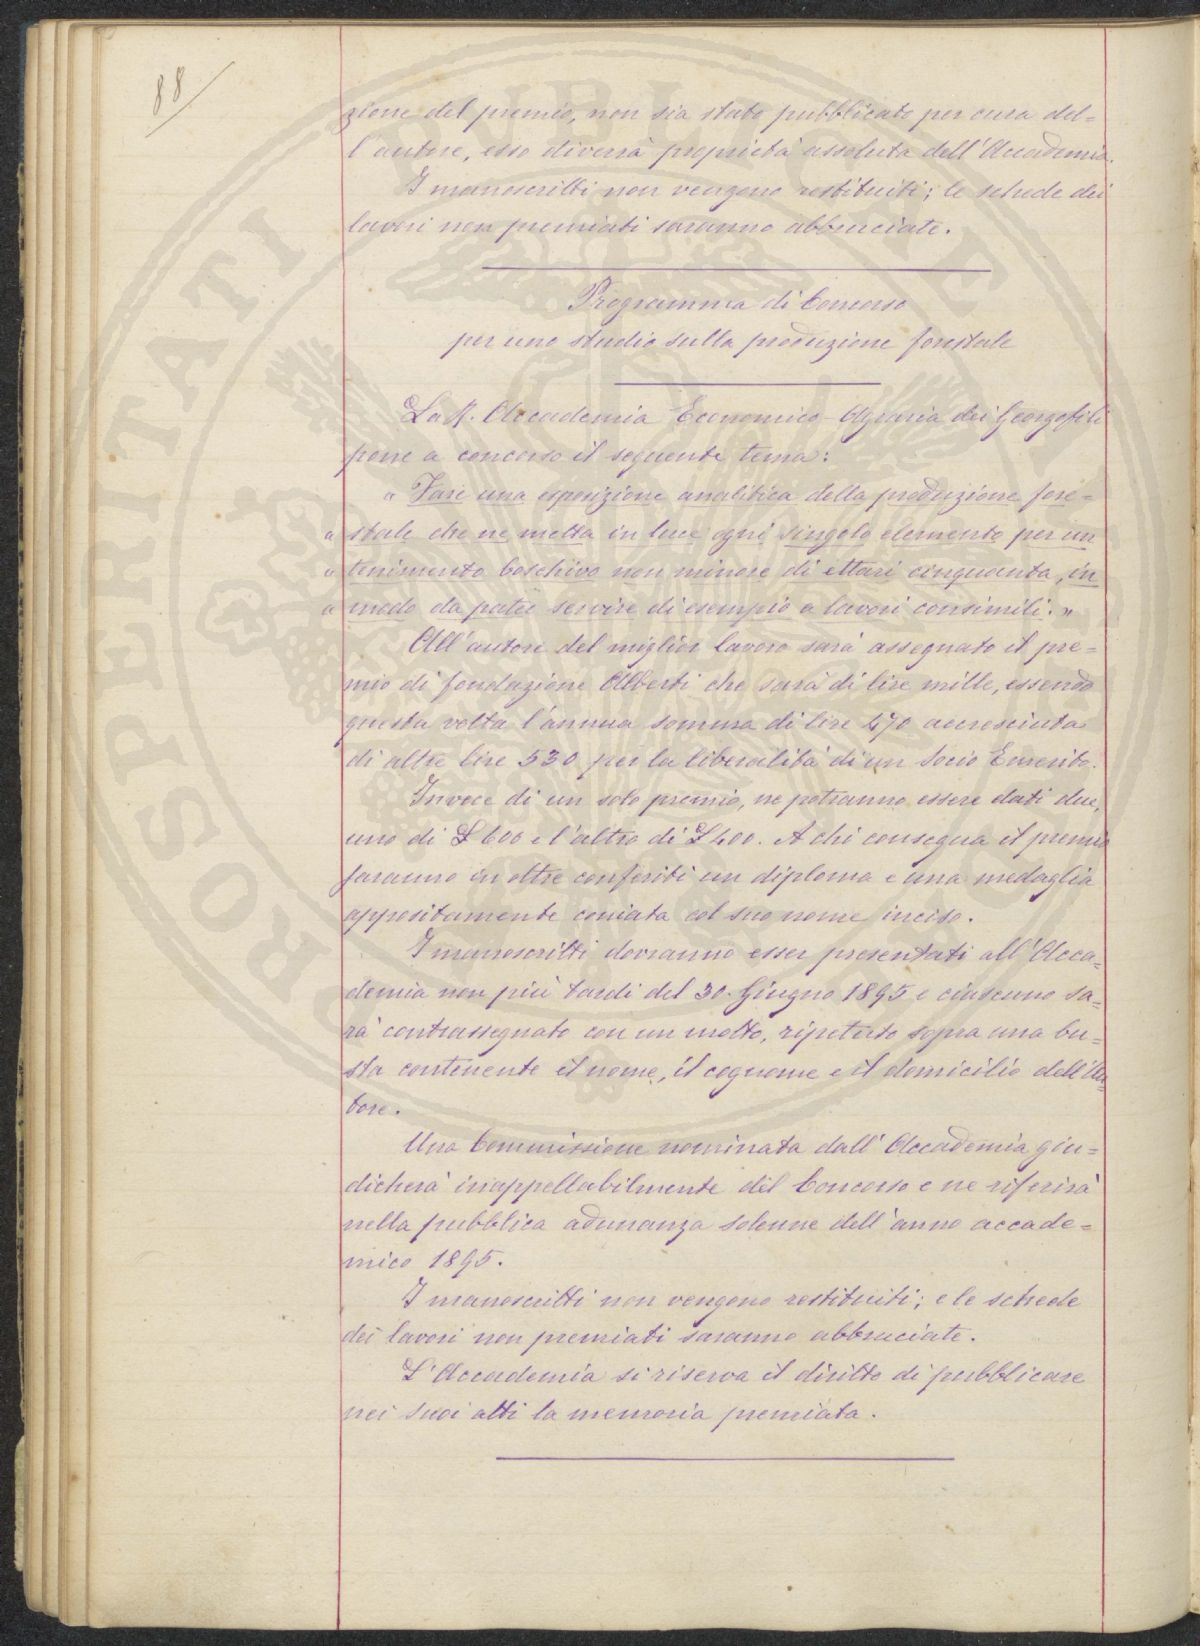 88
zione del premio, non sia stato pubblicato per cura del=
l'autore, esso diverrà proprietà assoluta dell'Accademia.
I manoscritti non vengono restituiti; le schede dei
lavori non premiati saranno abbruciate.
Programma di Concorso
per uno studio sulla produzione forestale
La R. Accademia Economico-Agraria dei Georgofili
pone a concorso il seguente tema:
" Fare una esposizione analitica della produzione fore=
" stale che ne metta in luce ogni singolo elemento per un
" tenimento boschivo non minore di ettari cinquanta, in
" modo da poter servire di esempio a lavori consimili. "
All'autore del miglior lavoro sarà assegnato il pre=
mio di fondazione Alberti che sarà di lire mille, essendo
questa volta l'annua somma di lire 470 accresciuta
di altre lire 530 per la liberalità di un Socio Emerito.
Invece di un solo premio, ne potranno essere dati due,
uno di £ 600 e l'altro di £ 400. A chi consegua il premio
saranno in oltre conferiti un diploma e una medaglia
appositamente coniata col suo nome inciso.
I manoscritti dovranno esser presentati all'Acca=
demia non più tardi del 30. Giugno 1895 e ciascuno sa=
rà contrassegnato con un motto, ripetuto sopra una bu=
sta contenente il nome, il cognome e il domicilio dell'Au=
tore.
Una Commissione nominata dall'Accademia giu=
dicherà inappellabilmente del Concorso e ne riferirà
nella pubblica adunanza solenne dell'anno accade=
mico 1895.
I manoscritti non vengono restituiti; e le schede
dei lavori non premiati saranno abbruciate.
L'Accademia si riserva il diritto di pubblicare
nei suoi atti la memoria premiata.
PROSPERITATI PUBLICAE